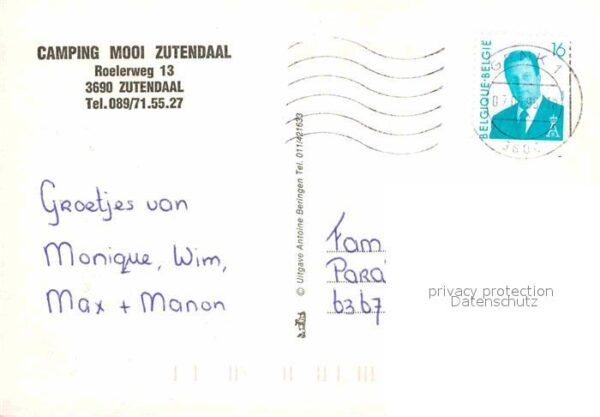 CAMPING MOOI ZUTENDAAL
Roelerweg 13
3690 ZUTENDAAL
Tel. 089/71.55.27
BELGIQUE-BELGIE
16
GENK 1
3600
© Uitgave Antoine Beringen Tel. 011/421633
Groetjes van
Monique, Wim,
Max + Manon
Fam
Para
6367
privacy protection
Datenschutz